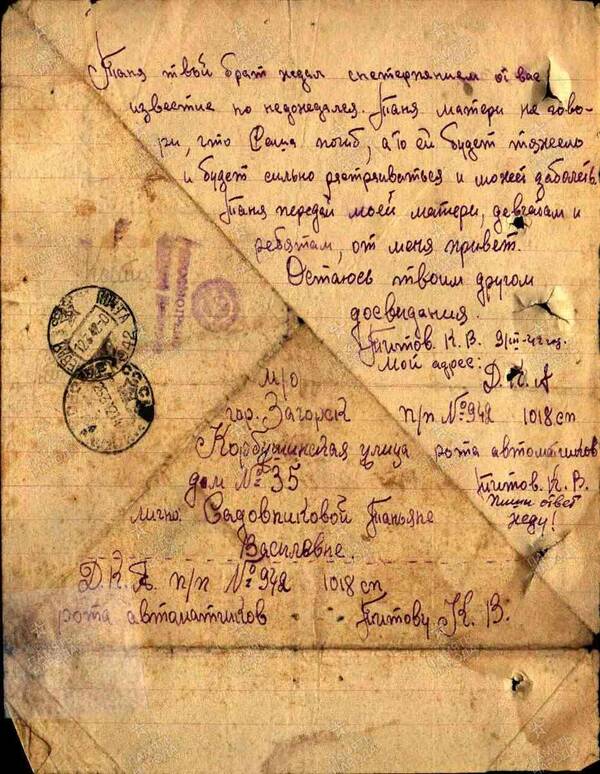 Таня твой брат ждал снетерпянием от вас
известие но недождался. Таня матери не гово-
ри, что Саша погиб, а то ей будет тяжело
и будет сильно растраиваться и может заболеть.
Таня передай моей матери, девчатам и
ребятам, от меня привет.
Остаюсь твоим другом
досвидания.
Титов. К. В. 9/III-42 г.
Мой адрес:
Д. К. А
п/п №942 1018 сп
рота автоматчиков
Титов. К. В.
Пиши ответ
жду!
м/о
гор. Загорск
улица
дом № 35
лично Садовниковой Татьяне
Василевне.
Д. К. А. п/п №942 1018 сп
рота автоматчиков Титову К. В.
ПОЧТА